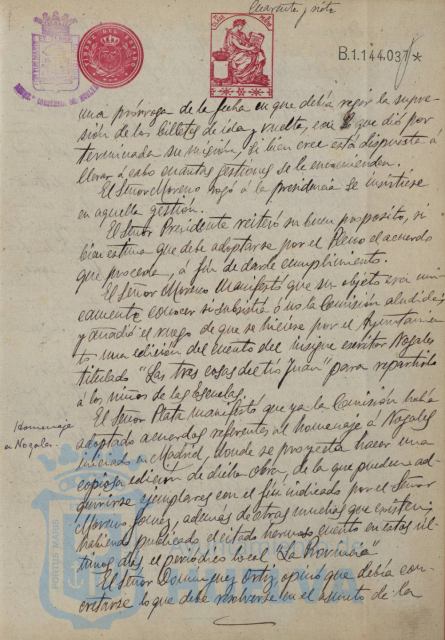 Cuarenta y siete
B.1.144.037 *
una prórroga de la fecha en que debía regir la supre-
sión de los billetes de ida y vuelta, con lo que dió por
terminada su misión, si bien cree está dispuesta a
llevar á cabo cuantas gestiones se le encomienden.
El Señor Moreno rogó á la presidencia se insistiese
en aquella gestión.
El Señor Presidente reiteró su buen proposito, si
bien estima que debe adoptarse por el Pleno el acuerdo
que proceda, á fin de darle cumplimiento.
El Señor Moreno manifestó que su objeto era úni-
camente conocer si subsistia ó no la Comisión aludida,
y añadió el ruego de que se hiciese por el Ayuntamien-
to, una edición del cuento del insigne escritor Nogales
titulado "Las tres cosas del tío Juan" para repartirla
á los niños de las Escuelas.
Homenaje
a Nogales
El Señor Plata manifestó que ya la Comisión había
adoptado acuerdos referentes al homenaje á Nogales
iniciado en Madrid, donde se proyecta hacer una
copiosa edición de dicha obra, de la que pueden ad-
quirirse ejemplares con el fin indicado por el Señor
Moreno, además de otras muchas que existen,
habiendo publicado el citado hermoso cuento en estos úl-
timos días el periódico local "La Provincia"
El Señor Dominguez Ortiz, opinó que debía con-
cretarse lo que debe resolverse en el asunto de la
PORTUS MARIS